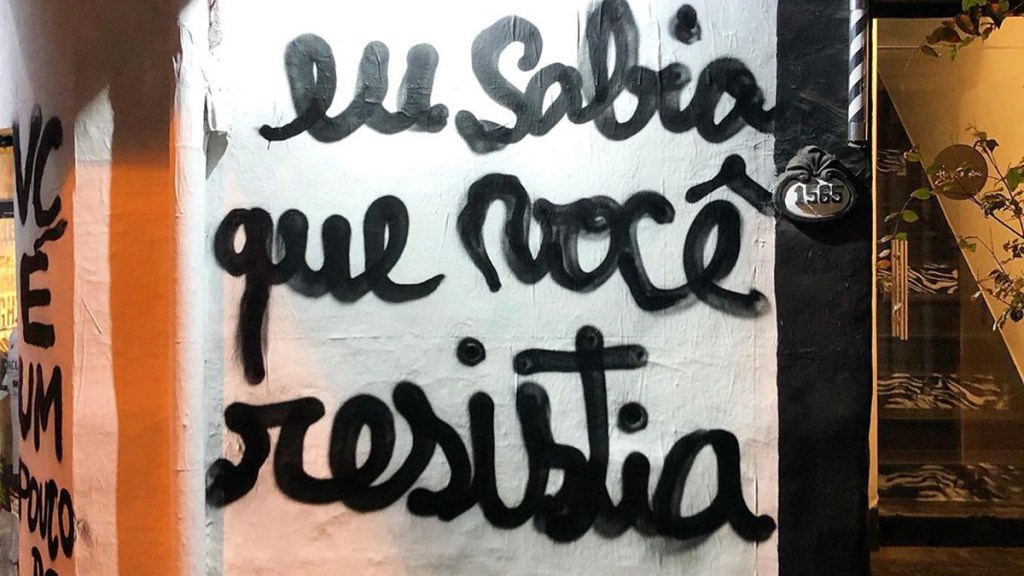 eu sabia
que você
resistia
1565
VC
É
UM
POUCO